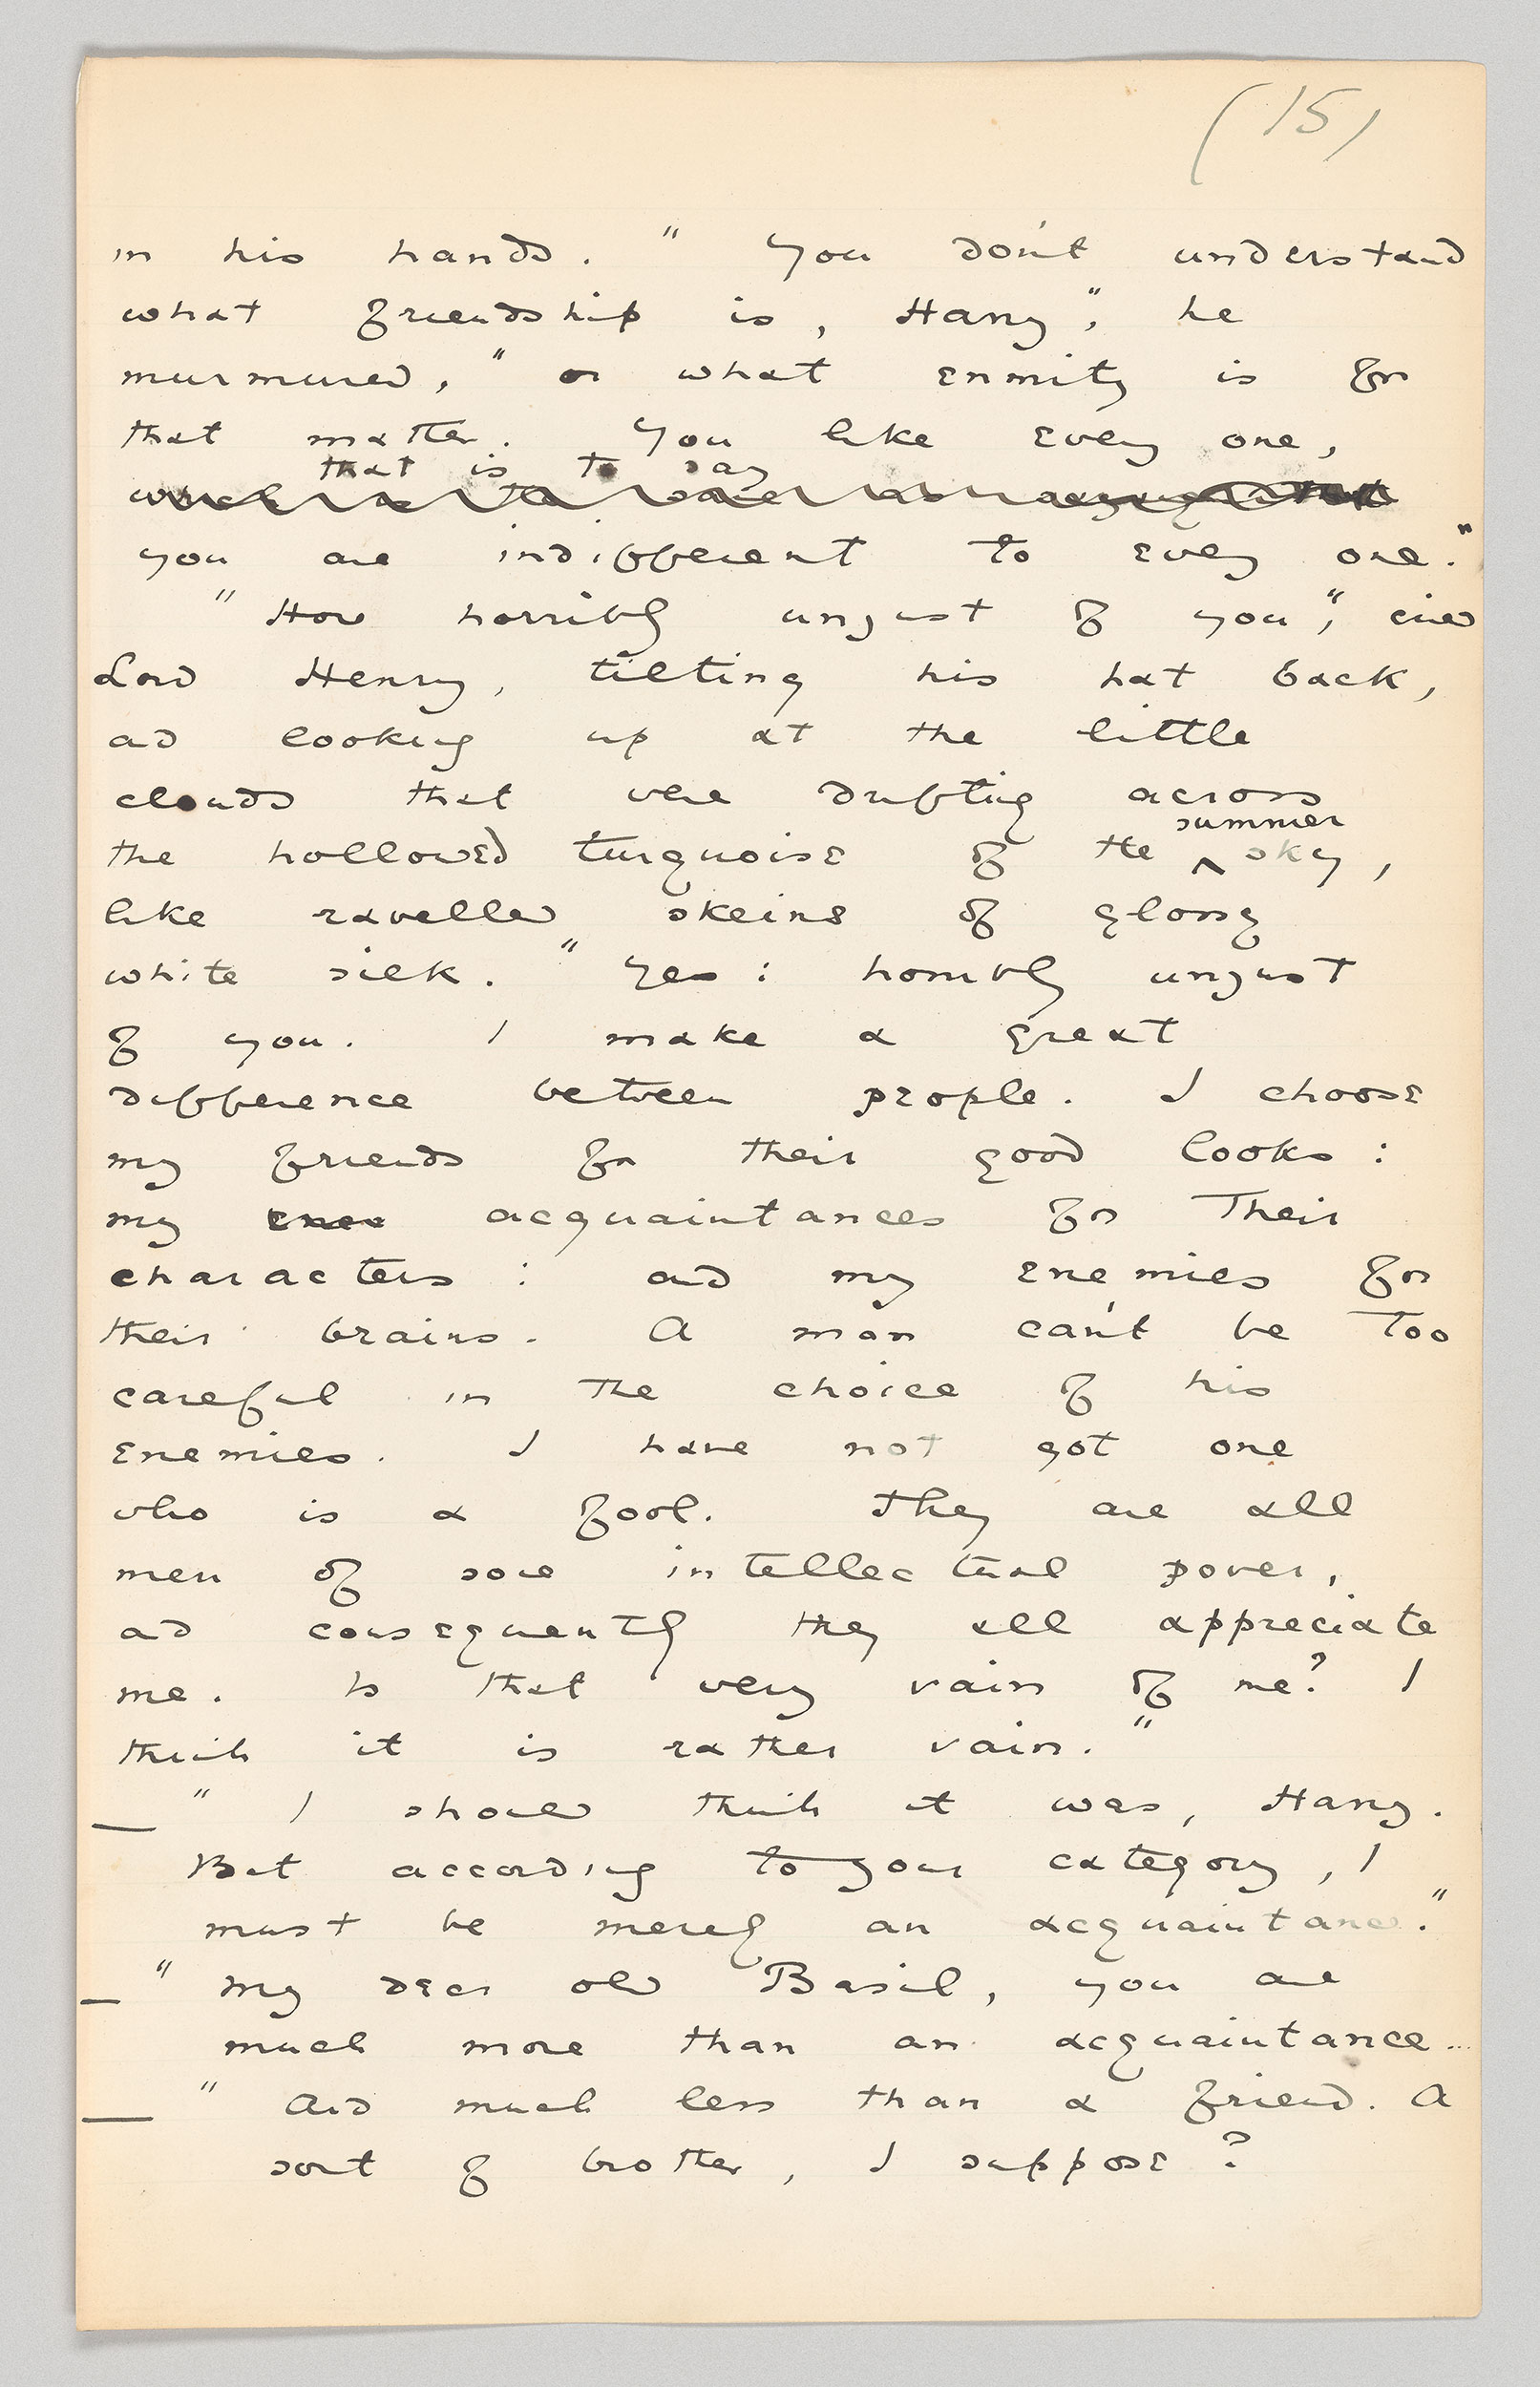 (15)
in his hands. "You don't understand
what friendship is, Harry", he
murmured, "or what enmity is for
that matter. You like every one,
that is to say
which is the same as saying that
you are indifferent to every one."
"How horribly unjust of you", cried
Lord Henry, tilting his hat back,
and looking up at the little
clouds that were drifting across
summer
the hollowed turquoise of the ^ sky,
like ravelled skeins of glossy
white silk. "Yes: horribly unjust
of you. I make a great
difference between people. I choose
my friends for their good looks:
my enem acquaintances for their
characters: and my enemies for
their brains. A man can't be too
careful in the choice of his
enemies. I have not got one
who is a fool. They are all
men of some intellectual power,
and consequently they all appreciate
me. Is that very vain of me? I
think it is rather vain."
— "I should think it was, Harry.
But according to your category, I
must be merely an acquaintance."
— "My dear old Basil, you are
much more than an acquaintance...
— "And much less than a friend. A
sort of brother, I suppose?